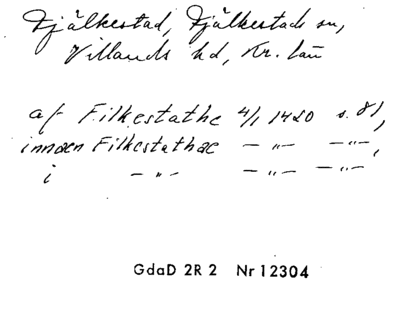 Fjälkestad, Fjälkestads sn,
Villands hd, Kr. län
af Filkestathe 4/1 1420 s. 81,
innæn Filkestathæ — „ — — „ —,
i — „ — — „ — — „ —
GdaD 2R 2 Nr 12304